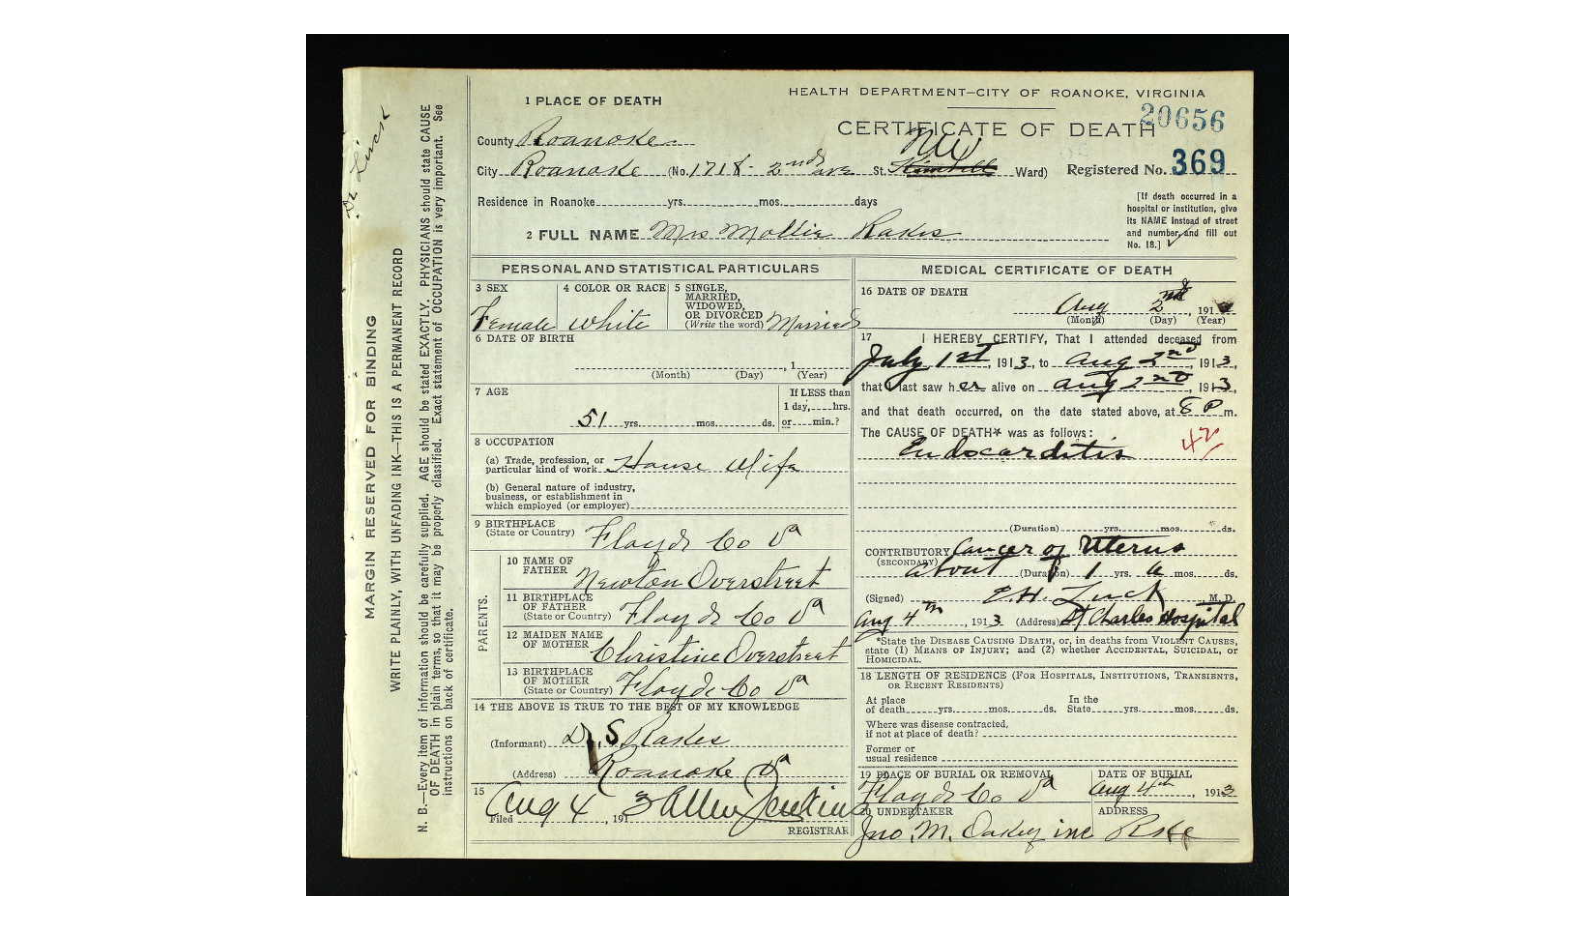 HEALTH DEPARTMENT—CITY OF ROANOKE, VIRGINIA
20656
CERTIFICATE OF DEATH
1 PLACE OF DEATH
County Roanoke
City Roanoke (No. 1718 - 2nd ave St. NW Ward) Registered No. 369
Residence in Roanoke yrs. mos. days
[If death occurred in a
hospital or institution, give
its NAME instead of street
and number and fill out
No. 18.]
2 FULL NAME Mrs Mollie Rakes
PERSONAL AND STATISTICAL PARTICULARS
3 SEX
Female
4 COLOR OR RACE
White
5 SINGLE,
MARRIED,
WIDOWED,
OR DIVORCED
(Write the word) Married
6 DATE OF BIRTH
, 1
(Month) (Day) (Year)
7 AGE
51 yrs. mos. ds.
If LESS than
1 day, hrs.
or min.?
8 OCCUPATION
(a) Trade, profession, or
particular kind of work House Wife
(b) General nature of industry,
business, or establishment in
which employed (or employer)
9 BIRTHPLACE
(State or Country) Floyd Co Va
PARENTS.
10 NAME OF
FATHER Newton Overstreet
11 BIRTHPLACE
OF FATHER
(State or Country) Floyd Co Va
12 MAIDEN NAME
OF MOTHER Christine Overstreet
13 BIRTHPLACE
OF MOTHER
(State or Country) Floyd Co Va
14 THE ABOVE IS TRUE TO THE BEST OF MY KNOWLEDGE
(Informant) S Rakes
(Address) Roanoke Va
15
Filed Aug 4, 1913 Allen Jenkins
REGISTRAR
MEDICAL CERTIFICATE OF DEATH
16 DATE OF DEATH
Aug 2nd, 191
(Month) (Day) (Year)
17 I HEREBY CERTIFY, That I attended deceased from
July 1st, 1913, to Aug 2nd, 1913,
that I last saw her alive on Aug 2nd, 1913,
and that death occurred, on the date stated above, at 8 P m.
The CAUSE OF DEATH* was as follows:
Endocarditis
(Duration) yrs. mos. ds.
CONTRIBUTORY Cancer of Uterus
(SECONDARY)
about (Duration) 1 yrs. mos. ds.
(Signed) E.H. Luck M. D.
Aug 4th, 1913 (Address) St Charles Hospital
*State the DISEASE CAUSING DEATH, or, in deaths from VIOLENT CAUSES,
state (1) MEANS OF INJURY; and (2) whether ACCIDENTAL, SUICIDAL, or
HOMICIDAL.
18 LENGTH OF RESIDENCE (FOR HOSPITALS, INSTITUTIONS, TRANSIENTS,
OR RECENT RESIDENTS)
At place In the
of death yrs. mos. ds. State yrs. mos. ds.
Where was disease contracted,
if not at place of death?
Former or
usual residence
19 PLACE OF BURIAL OR REMOVAL
Floyd Co Va
DATE OF BURIAL
Aug 4th, 1913
20 UNDERTAKER
Jno. M. Oakey inc
ADDRESS
Rske
Dr Luck
MARGIN RESERVED FOR BINDING
WRITE PLAINLY, WITH UNFADING INK—THIS IS A PERMANENT RECORD
N. B.—Every item of information should be carefully supplied. AGE should be stated EXACTLY. PHYSICIANS should state CAUSE
OF DEATH in plain terms, so that it may be properly classified. Exact statement of OCCUPATION is very important. See
instructions on back of certificate.